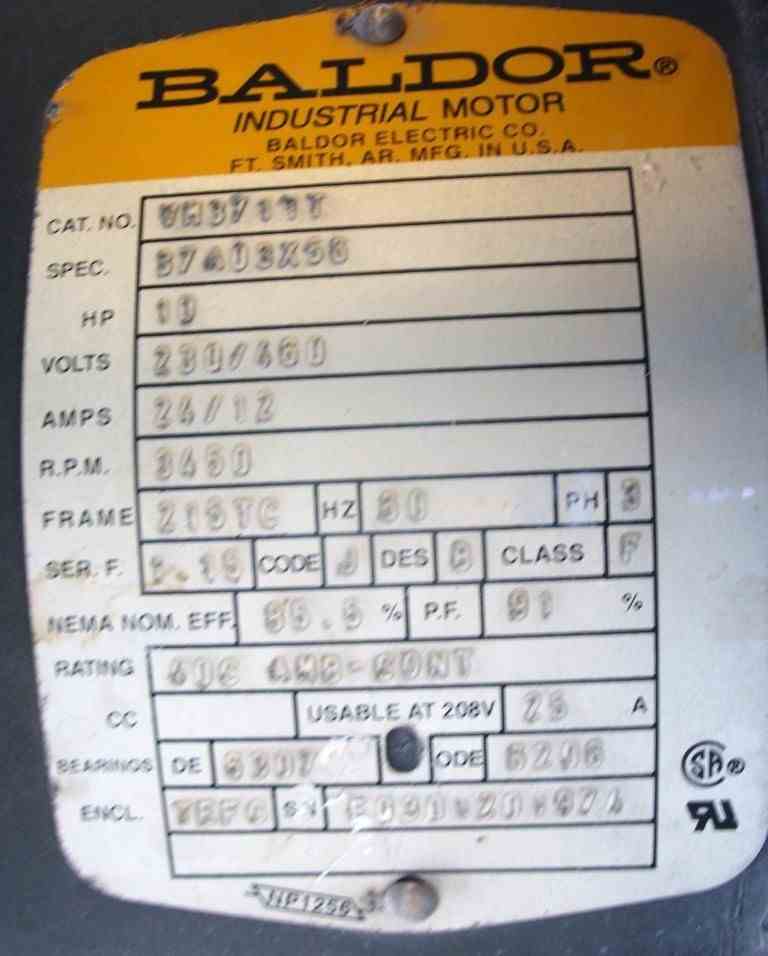 BALDOR®
INDUSTRIAL MOTOR
BALDOR ELECTRIC CO.
FT. SMITH, AR. MFG. IN U.S.A.
CAT. NO. VM3711T
SPEC. 37A03X58
HP 10
VOLTS 230/460
AMPS 24/12
R.P.M. 3450
FRAME 215TC HZ 60 PH 3
SER. F. 1.15 CODE J DES B CLASS F
NEMA NOM. EFF. % P.F. 91 %
RATING 40C AMB-CONT
CC USABLE AT 208V A
BEARINGS DE ODE 6206
ENCL. TEFC SN
NP1256